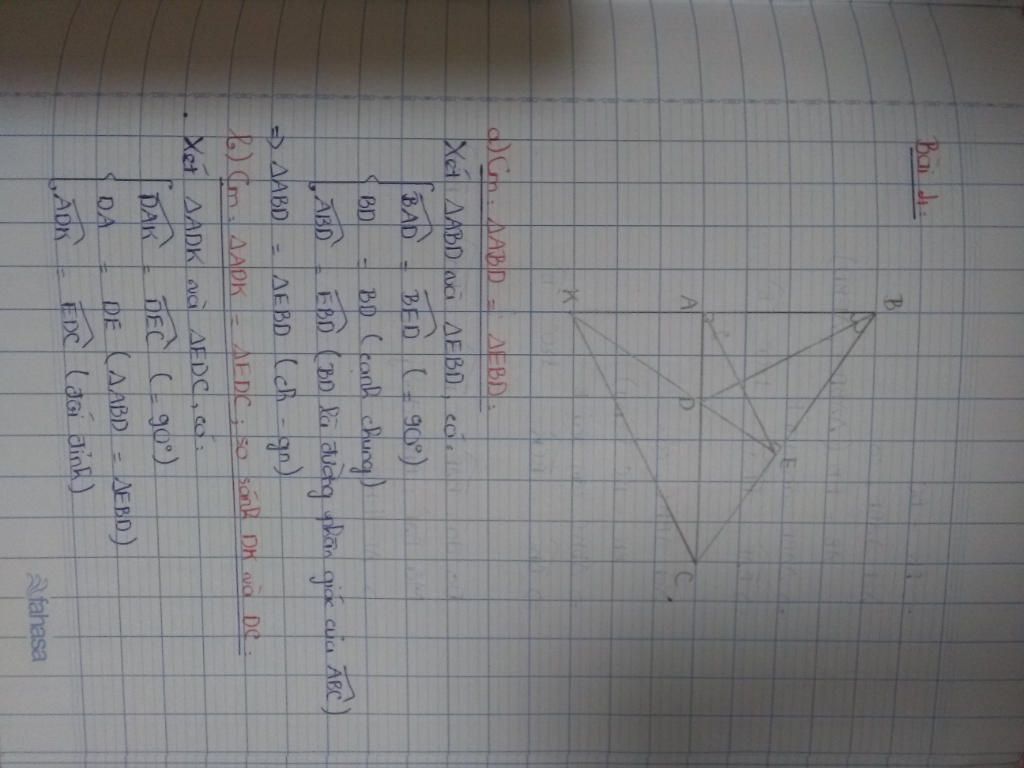 Bài 1:
B
A
E
D
K
C
a) Cm: ΔABD = ΔEBD:
Xét ΔABD và ΔEBD, có:
BAD = BED (= 90°)
BD = BD (cạnh chung)
ABD = EBD (BD là đường phân giác của ABC)
=> ΔABD = ΔEBD (ch - gn)
b) Cm: ΔADK = ΔEDC; so sánh DK và DC:
Xét ΔADK và ΔEDC, có:
DAK = DEC (= 90°)
DA = DE (ΔABD = ΔEBD)
ADK = EDC (đối đỉnh)
fahasa